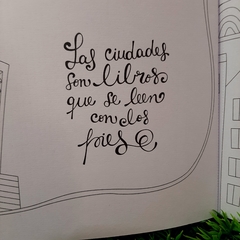 Las ciudades
son libros
que se leen
con los
pies